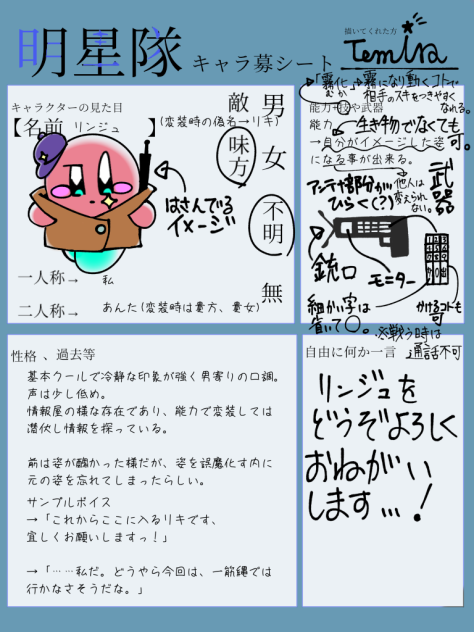 明星隊 キャラ募シート
描いてくれた方
Temira
キャラクターの見た目
【名前 リンジュ 】
(変装時の偽名→リキ)
敵
味方
男
女
不明
無
はさんでる
イメージ
一人称→ 私
二人称→ あんた(変装時は貴方、貴女)
「霧化」→霧になり動くコトで
むか
相手のスキをつきやすく
なれる。
能力・技や武器
能力 生き物でなくても
可。
→自分がイメージした姿
になる事が出来る。
他人は
変えられ
ない。
武器
アンテナ部分が
ひらく(?)
銃口
モニター
細かい字は
省いて〇。
かけるコトも
可
※戦う時は
通話不可
性格 、過去等
基本クールで冷静な印象が強く男寄りの口調。
声は少し低め。
情報屋の様な存在であり、能力で変装しては
潜伏し情報を探っている。
前は姿が醜かった様だが、姿を誤魔化す内に
元の姿を忘れてしまったらしい。
サンプルボイス
→「これからここに入るリキです、
宜しくお願いしますっ!」
→「……私だ。どうやら今回は、一筋縄では
行かなさそうだな。」
自由に何か一言
リンジュを
どうぞよろしく
おねがい
します…!